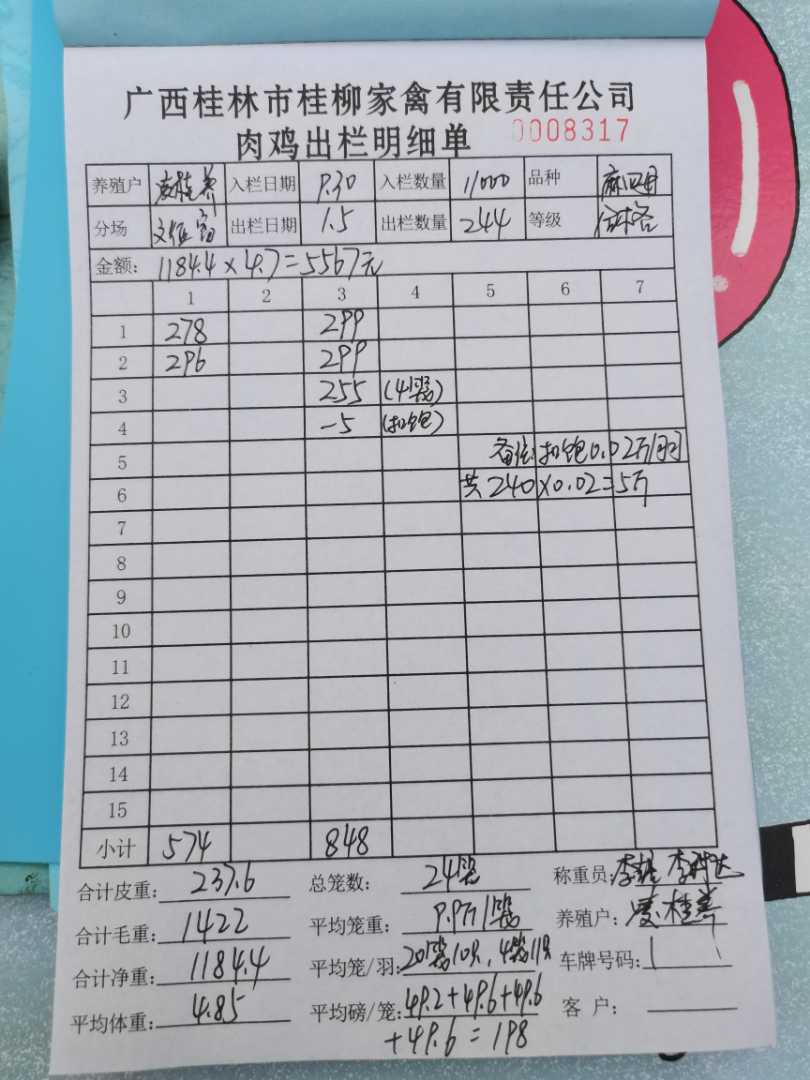 广西桂林市桂柳家禽有限责任公司
肉鸡出栏明细单 0008317
养殖户 凌桂善 入栏日期 9.30 入栏数量 11000 品种
分场 出栏日期 1.5 出栏数量 244 等级
金额: 1184.4×4.7=5567元
1 2 3 4 5 6 7
1 278 299
2 296 299
3 255 (4笼)
4 -5 (扣饱)
5 备注:扣饱0.02斤/羽
6 共240×0.02=5斤
7
8
9
10
11
12
13
14
15
小计 574 848
合计皮重: 237.6 总笼数: 24笼 称重员:
合计毛重: 1422 平均笼重: 9.9斤/笼 养殖户: 凌桂善
合计净重: 1184.4 平均笼/羽: 20笼10只,4笼11只 车牌号码:
平均体重: 4.85 平均磅/笼: 49.2+49.6+49.6 客 户:
+49.6=198